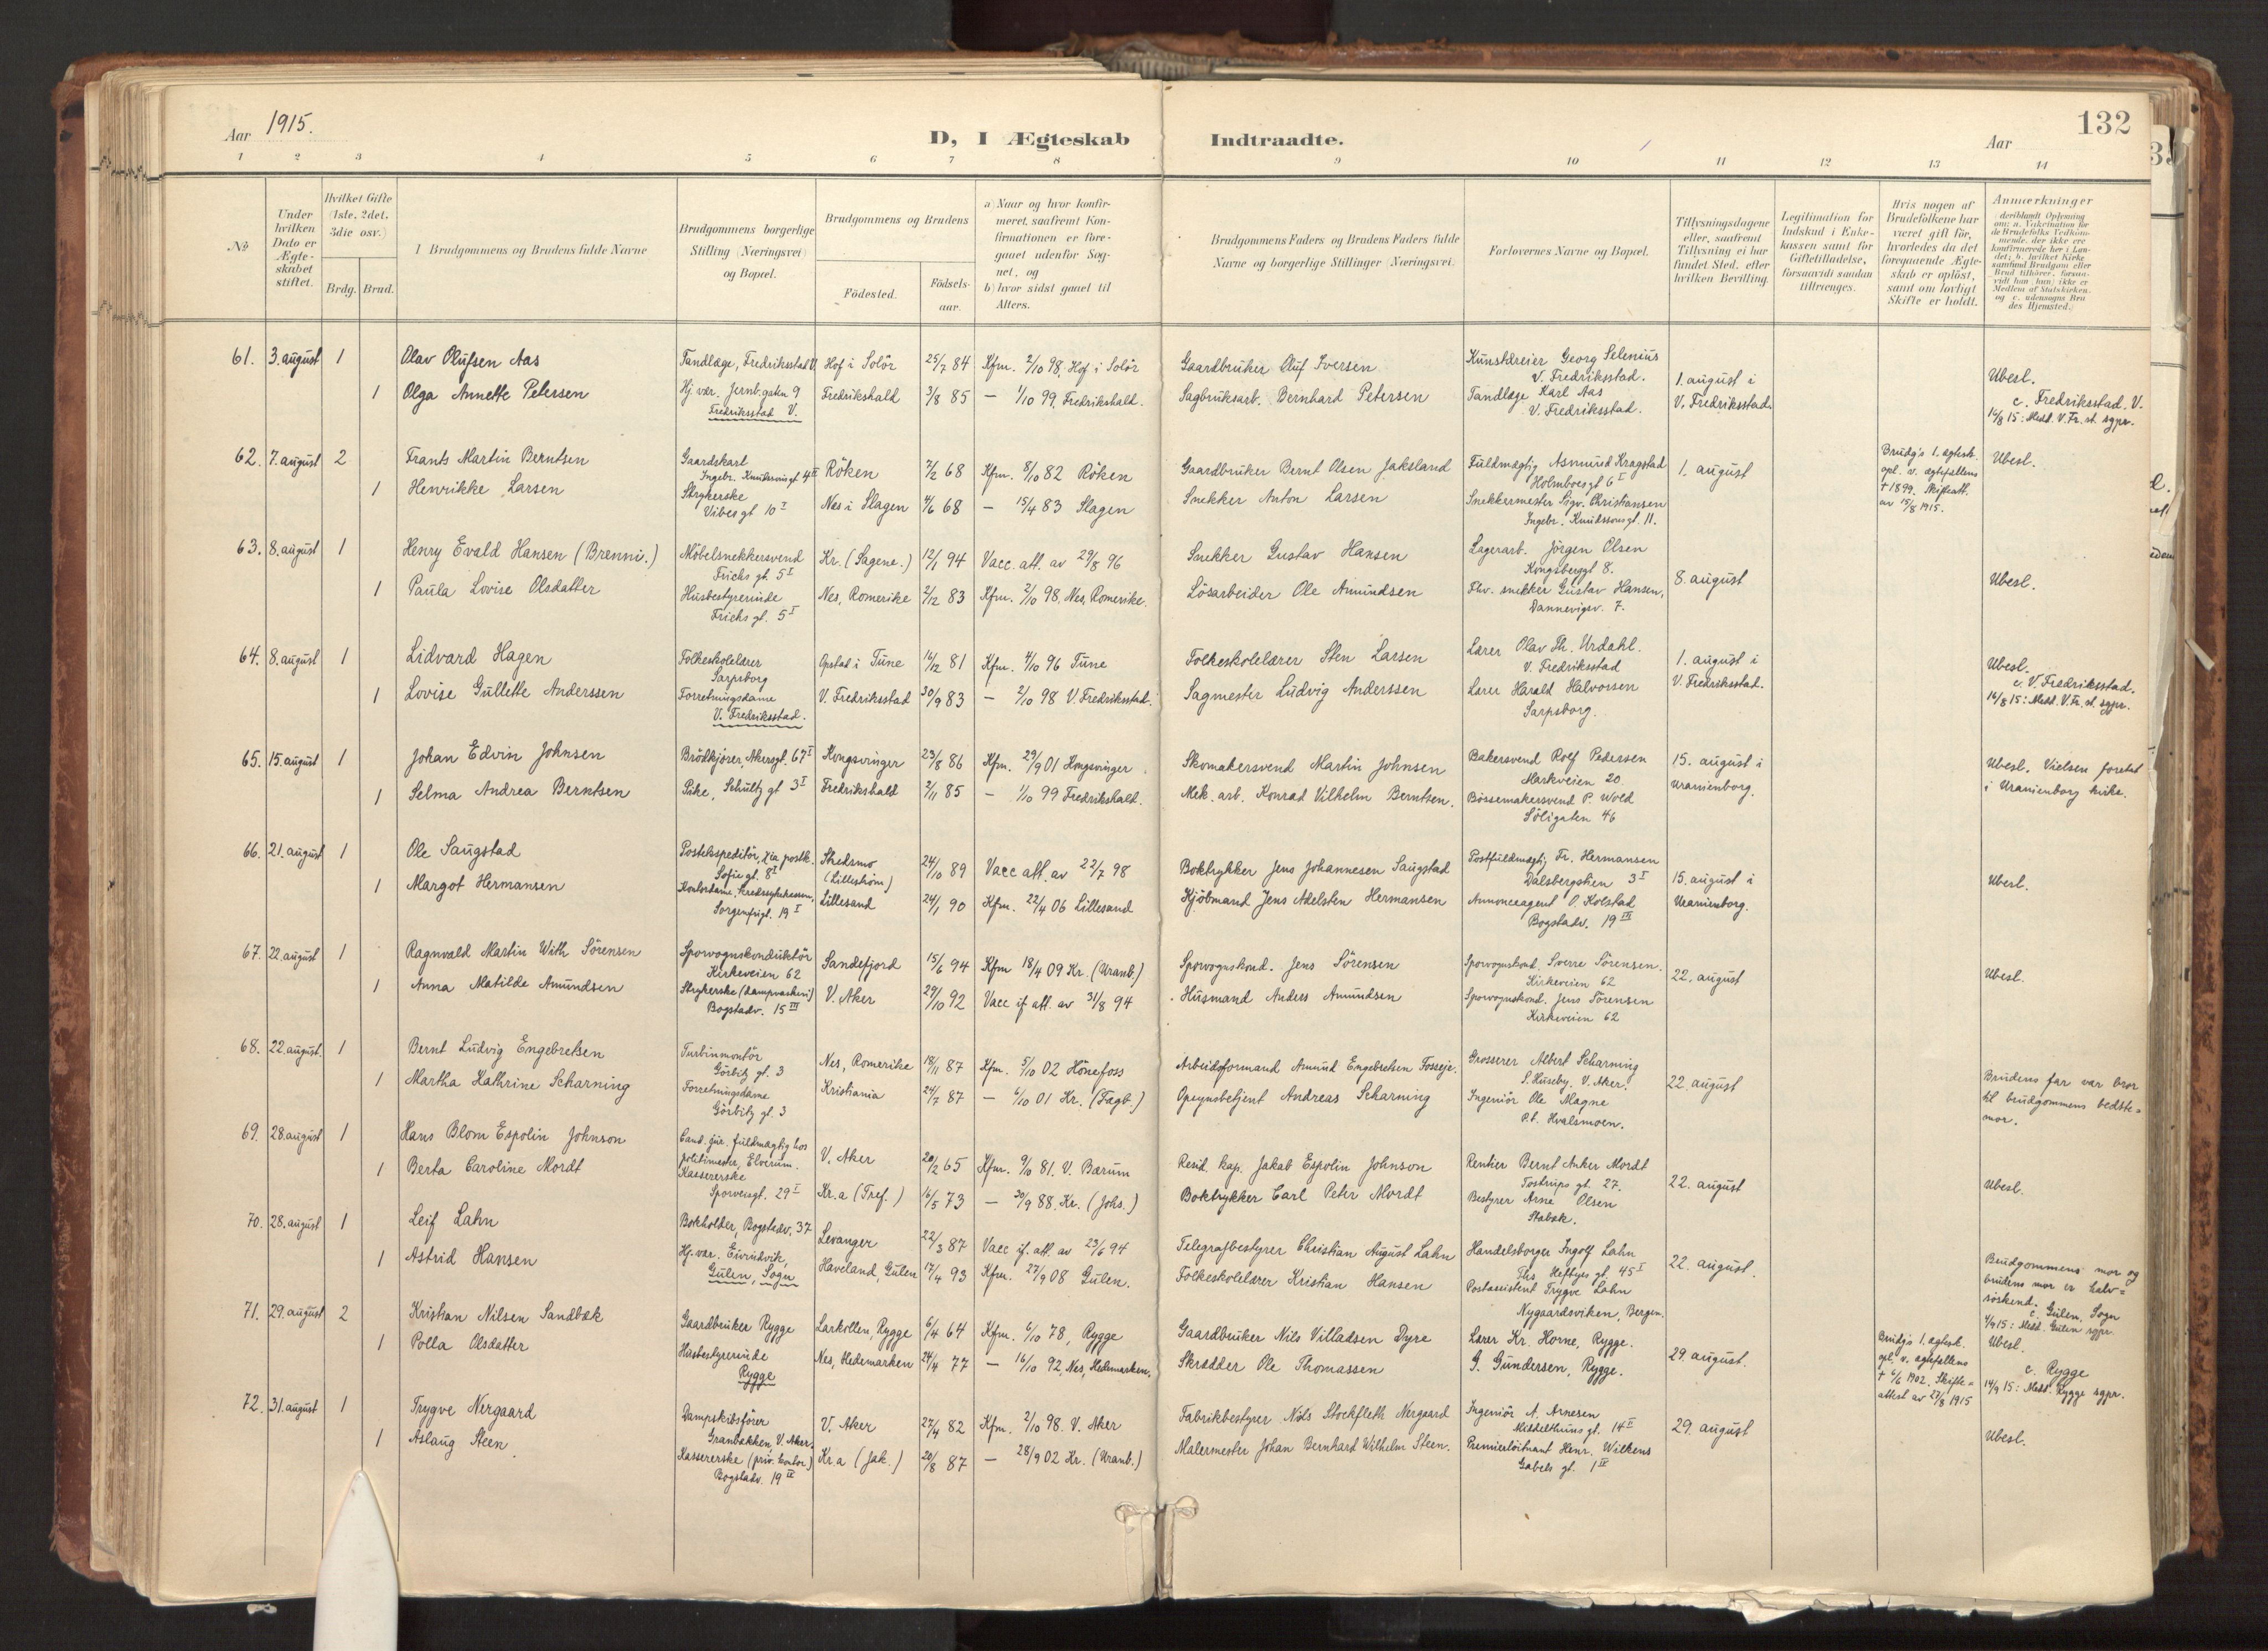 Aar 1915.
D, I Ægteskab Indtraadte.
132
Aar
1 2 3 4 5 6 7 8 9 10 11 12 13 14
№
Under hvilken Dato er Ægteskabet stiftet.
Hvilket Gifte (1ste, 2det, 3die osv.)
Brdg. Brud.
Brudgommens og Brudens fulde Navne
Brudgommens borgerlige Stilling (Næringsvei) og Bopæl.
Brudgommens og Brudens
Fødested.
Fødsels-aar.
a) Naar og hvor konfirmeret, saafremt Konfirmationen er foregaaet udenfor Sognet, og
b) hvor sidst gaaet til Alters.
Brudgommens Faders og Brudens Faders fulde Navne og borgerlige Stillinger (Næringsvei).
Forlovernes Navne og Bopæl.
Tillysningsdagene eller, saafremt Tillysning ei har fundet Sted, efter hvilken Bevilling.
Legitimation for Indskud i Enkekassen samt for Giftetilladelse, forsaavidt saadan tiltrænges.
Hvis nogen af Brudefolkene har været gift før, hvorledes da det foregaaende Ægteskab er opløst, samt om lovligt Skifte er holdt.
Anmærkninger
61. 3. august 1 Olav Olufsen Aas Tandlæge, Fredriksstad V. Hof i Solör 25/7 84 Kfm. 2/10 98, Hof i Solör Gaardbruker Oluf Iversen Kunstdreier Georg Selenius V. Fredriksstad. 1. august i V. Fredriksstad. Ubesl.
1 Olga Annette Petersen Hj. vær. Jernb. gaten 9 Fredriksstad V. Fredrikshald 3/8 85 — 1/10 99, Fredrikshald. Sagbruksarb. Bernhard Petersen Tandlæge Karl Aas V. Fredriksstad. c. Fredriksstad. V. 16/8 15: Medd. V. Fr. st. sgpr.
62. 7. august 2 Frants Martin Berntsen Gaardskarl Ingebr. Knudssons gt. 4 II Röken 7/2 68 Kfm. 8/10 82 Röken Gaardbruker Bernt Olsen Jaksland Fuldmægtig Asmund Kragstad Holmboesgt 6 I 1. august Brudg's 1. ægtesk. opl. v. ægtefællens † 1899. Skifteatt. av 15/8 1915. Ubesl.
1 Henrikke Larsen Strykerske Vibesgt 10 I Nes i Slagen 4/6 68 — 15/4 83 Slagen Snekker Anton Larsen Snekkermester Sigv. Christiansen Ingebr. Knudssonsgt. 11.
63. 8. august 1 Henry Evald Hansen (Brenni.) Möbelsnekkersvend Frichs gt. 5 I Kr. (Sagene.) 12/1 94 Vacc. att. av 29/8 96 Snekker Gustav Hansen Lagerarb. Jörgen Olsen Kongsberggt 8. 8. august Ubesl.
1 Paula Lovise Olsdatter Husbestyrerinde Frichs gt. 5 I Nes, Romerike 2/12 83 Kfm. 2/10 98, Nes, Romerike. Lösarbeider Ole Amundsen Fhv. snekker Gustav Hansen, Dannevigsv. 7.
64. 8. august 1 Lidvard Hagen Folkeskolelærer Sarpsborg Opstad i Tune 16/12 81 Kfm. 4/10 96 Tune Folkeskolelærer Sten Larsen Lærer Olav Th. Urdahl. V. Fredriksstad 1. august i V. Fredriksstad. Ubesl.
1 Lovise Gullette Anderssen Forretningsdame V. Fredriksstad. V. Fredriksstad 30/9 83 — 2/10 98 V. Fredriksstad. Sagmester Ludvig Anderssen Lærer Harald Halvorsen Sarpsborg. c. V. Fredriksstad. 16/8 15: Medd. V. Fr. st. sgpr.
65. 15. august 1 Johan Edvin Johnsen Brödkjörer, Akersgt. 67 I Kongsvinger 23/8 86 Kfm. 29/9 01 Kongsvinger Skomakersvend Martin Johnsen Bakersvend Rolf Pedersen Markveien 20 15. august i Uranienborg. Ubesl. Vielsen foretat i Uranienborg kirke.
1 Selma Andrea Berntsen Pike, Schultz gt 3 I Fredrikshald 2/11 85 — 1/10 99 Fredrikshald. Mek. arb. Konrad Vilhelm Berntsen. Börsemakersvend P. Wold Söligaten 46
66. 21. august 1 Ole Saugstad Postekspeditör, Kra postk. Sofiegt. 8 I Skedsmo (Lilleström) 24/10 89 Vacc att. av 22/7 98 Boktrykker Jens Johannesen Saugstad Postfuldmægtig Fr. Hermansen Dalsbergstien 3 I 15. august i Uranienborg. Ubesl.
1 Margot Hermansen Kontordame, kredssykekassen, Sorgenfrigt. 19 I Lillesand 24/1 90 Kfm. 22/4 06 Lillesand Kjöbmand Jens Adelsten Hermansen Annonceagent O. Kolstad Bogstadv. 19 III
67. 22. august 1 Ragnvald Martin With Sörensen Sporvognskonduktör Kirkeveien 62 Sandefjord 15/6 94 Kfm 18/4 09 Kr. (Uranb.) Sporvognskond. Jens Sörensen Sporvognskond. Sverre Sörensen. Kirkeveien 62 22. august Ubesl.
1 Anna Matilde Amundsen Strykerske (dampvaskeri) Bogstadv. 15 III V. Aker 29/10 92 Vacc if att. av 31/8 94 Husmand Anders Amundsen Sporvognskond. Jens Sörensen Kirkeveien 62
68. 22. august. 1 Bernt Ludvig Engebretsen Turbinmontör Görbitz gt. 3 Nes, Romerike 18/11 87 Kfm. 5/10 02 Hönefoss Arbeidsformand Amund Engebretsen Fosseje. Grosserer Albert Scharning S. Huseby, V. Aker. 22. august Brudens far var bror til brudgommens bedstemor.
1 Martha Kathrine Scharning Forretningsdame Görbitz gt. 3 Kristiania 24/7 87 — 6/10 01 Kr. (Fagb.) Opsynsbetjent Andreas Scharning Ingeniör Ole Magne P.t. Hvalsmoen.
69. 28. august 1 Hans Blom Espolin Johnson Cand. jur. fuldmægtig hos politimester, Elverum. V. Aker 20/2 65 Kfm. 9/10 81. V. Bærum Resid. kap. Jakob Espolin Johnson Rentier Bernt Anker Mordt Tostrups gt. 27. 22. august Ubesl.
1 Berta Caroline Mordt Kassererske Sporveisgt. 29 I Kr.a (Tref.) 16/5 73 — 30/9 88. Kr. (Johs.) Boktrykker Carl Peter Mordt Bestyrer Arne Olsen Stabæk.
70. 28. august 1 Leif Lahn Bokholder, Bogstadv. 37 Levanger 22/3 87 Vacc if. att. av 23/6 94 Telegrafbestyrer Christian August Lahn Handelsborger Ingolf Lahn Ths Heftyes gt. 45 I 22. august. Brudgommens mor og brudens mor er halvsöskend.
1 Astrid Hansen Hj. vær. Eivindvik, Gulen, Sogn Haveland, Gulen 17/4 93 Kfm. 27/9 08 Gulen. Folkeskolelærer Kristian Hansen Postassistent Trygve Lahn Nygaardsviken, Bergen. c. Gulen, Sogn 4/9 15: Medd. Gulen sgpr.
71. 29. august 2 Kristian Nilsen Sandbæk Gaardbruker Rygge Larkollen, Rygge 6/4 64 Kfm. 6/10 78, Rygge Gaardbruker Nils Villadsen Dyre Lærer Kr. Horne, Rygge. 29. august. Brudg's 1. ægtesk. opl. v. ægtefællens † 6/6 1902. Skifteattest av 27/8 1915 Ubesl.
1 Polla Olsdatter Husbestyrerinde Rygge Nes, Hedemarken 24/4 77 — 16/10 92, Nes, Hedemarken. Skrædder Ole Thomassen G. Gundersen, Rygge. c. Rygge 14/9 15: Medd. Rygge sgpr.
72. 31. august 1 Trygve Nergaard Dampskibsförer Granbakken, V. Aker. V. Aker 27/4 82 Kfm. 2/10 98. V. Aker Fabrikbestyrer Nils Stockfleth Nergaard Ingeniör A. Arnesen Middelthuns gt. 14 II 29. august Ubesl.
1 Aslaug Steen Kassererske (priv. kontor) Bogstadv. 19 II Kr.a (Jak.) 20/8 87 — 28/9 02 Kr. (Uranb.) Malermester Johan Bernhard Wilhelm Steen. Premierlöitnant Henr. Wilkens Gabels gt. 1 II